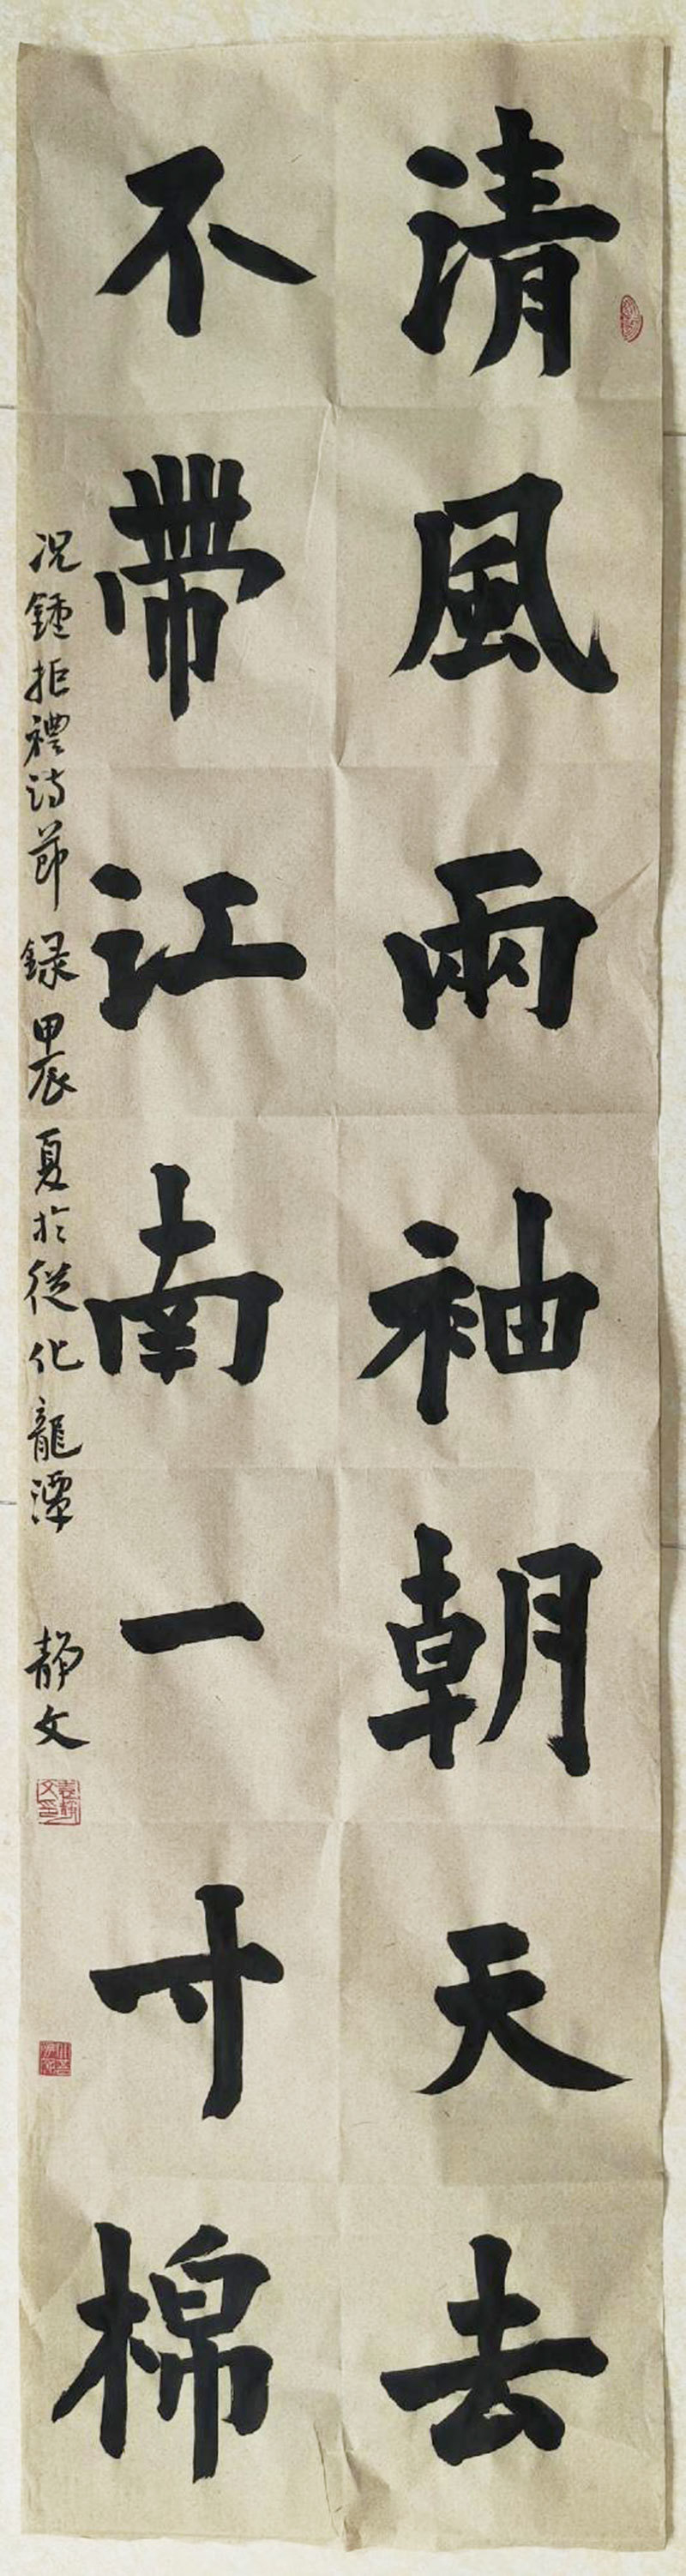 清風兩袖朝天去
不帶江南一寸棉
况鍾拒禮诗節錄甲辰夏於從化龍潭
靜文